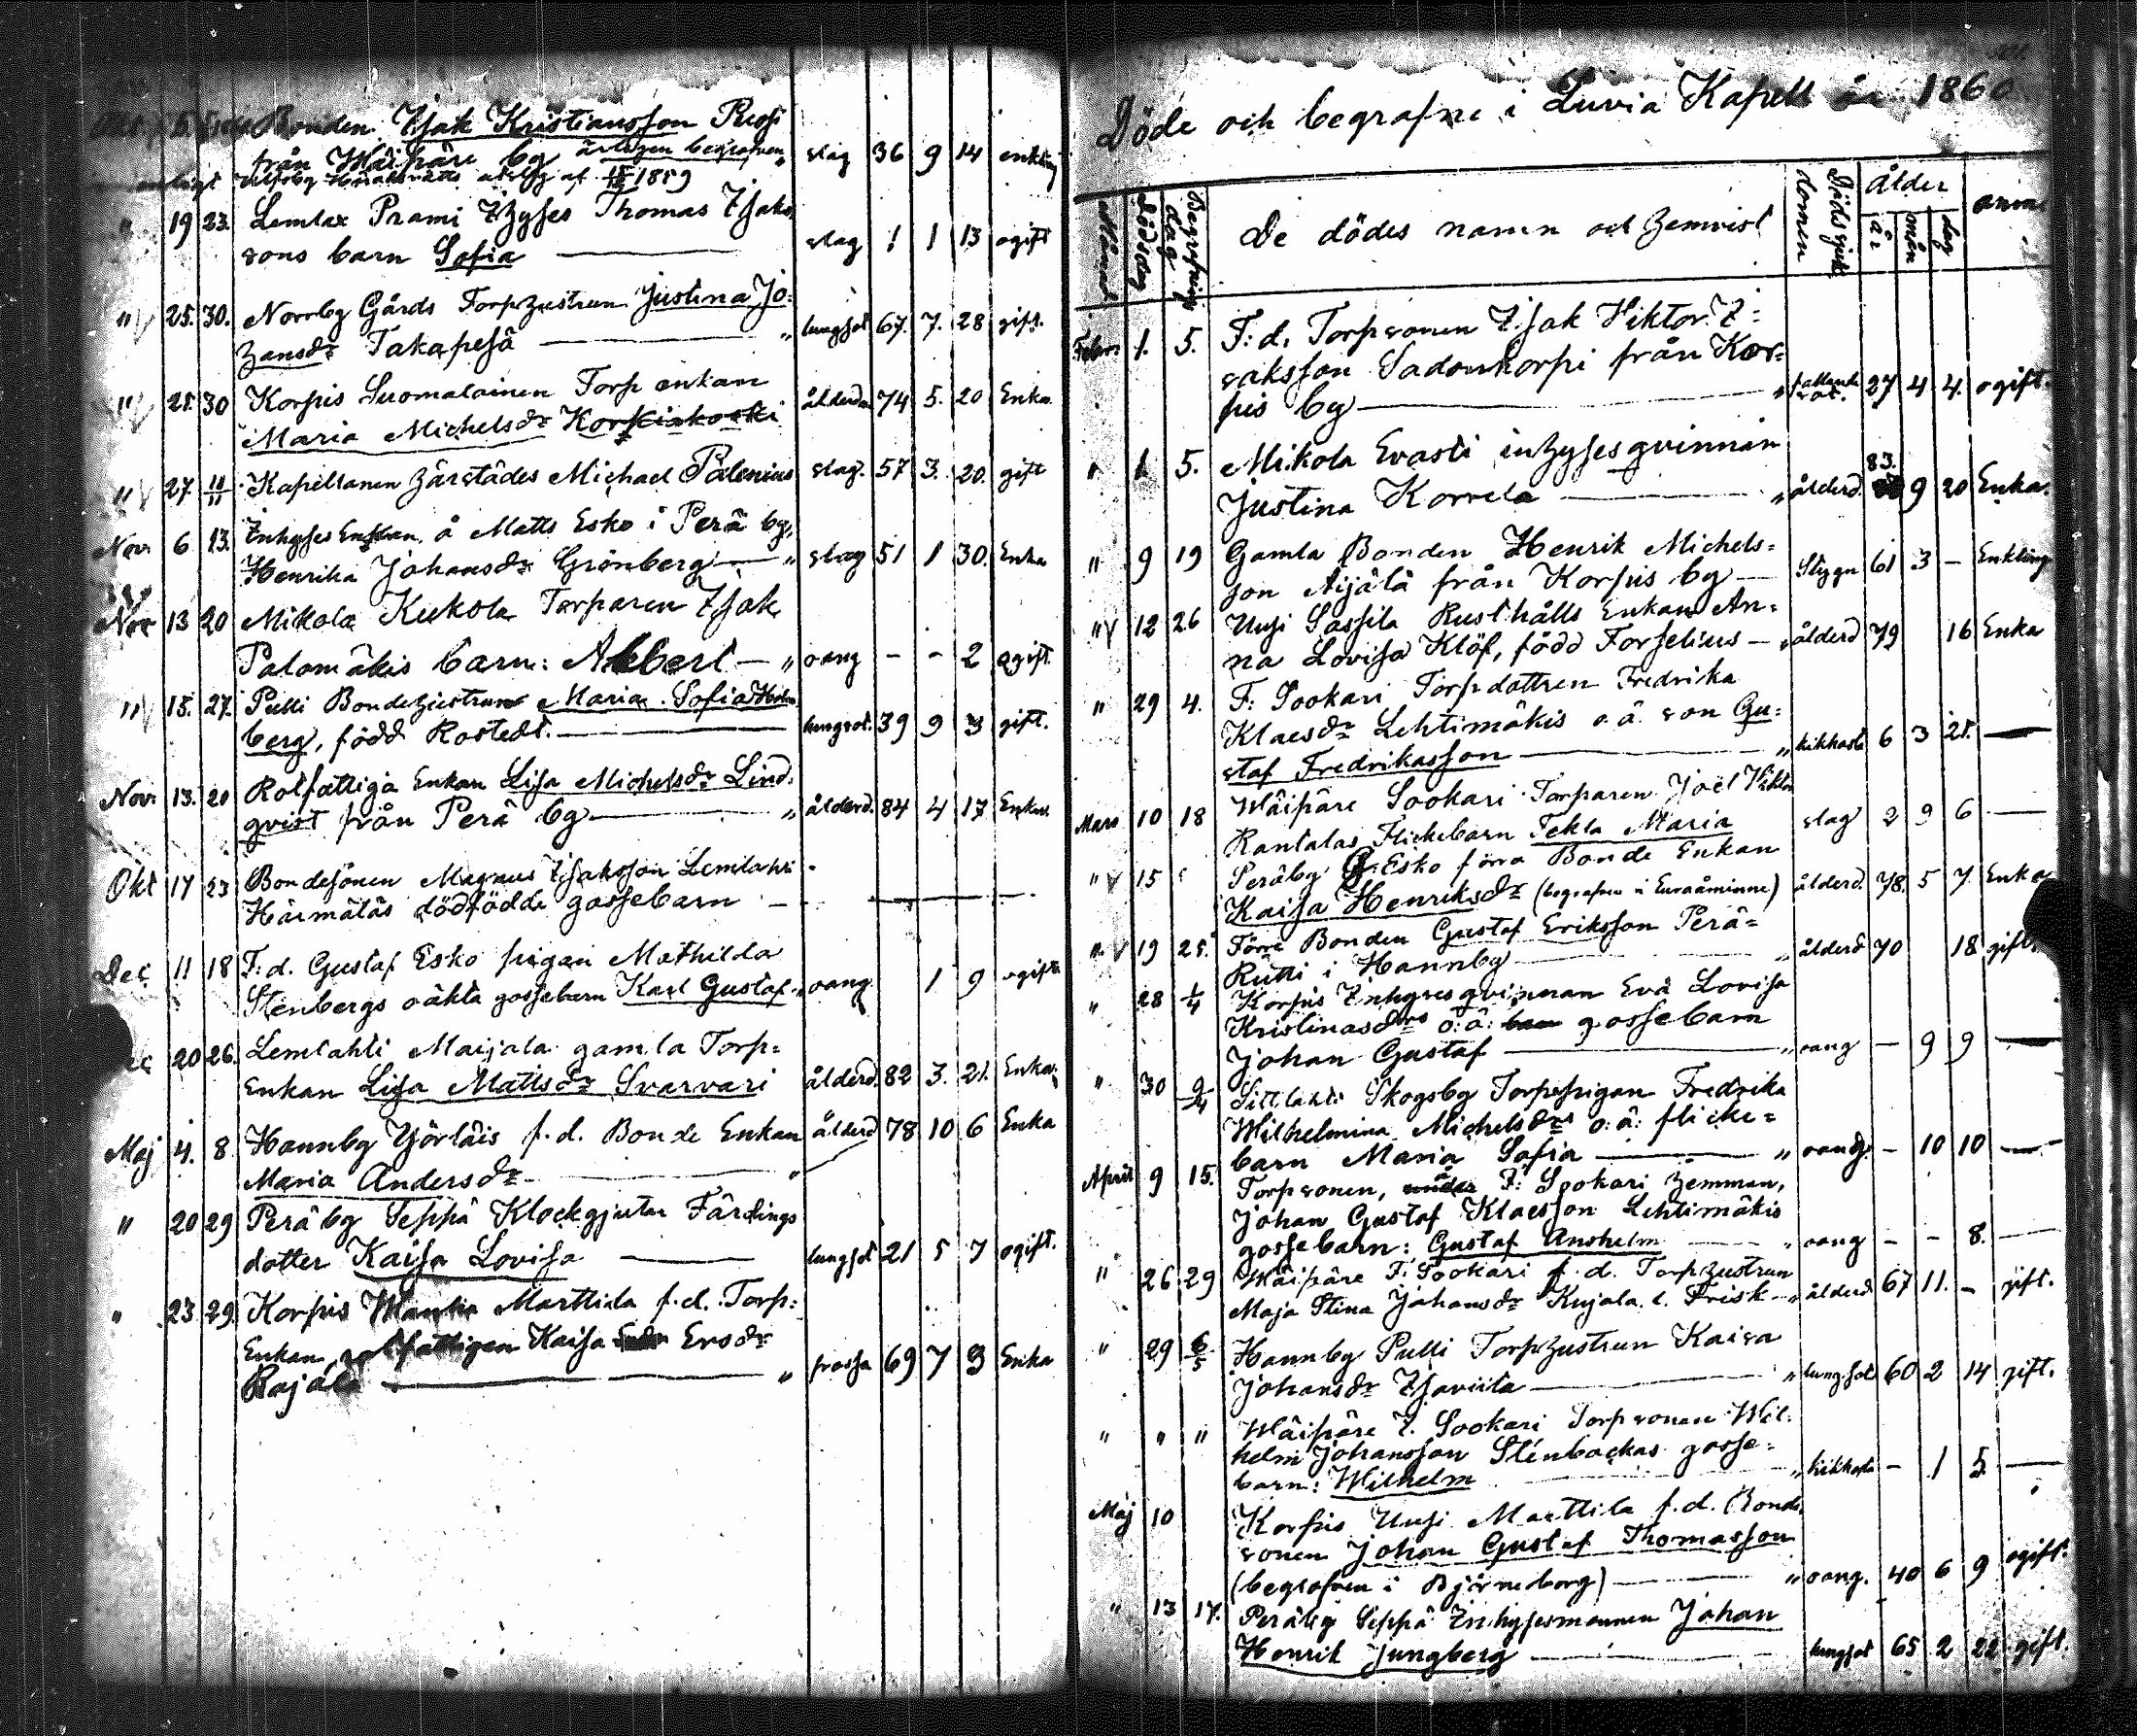 Bonden Isak Kristiansson Prusi
från Wäipäre by ärligen begrafven " slag 36 9 14 enkling
enligt Ulfsby Häradsrätts utslag af 1859
" 19 23. Lemlax Prami Ihyses Thomas Isaks
sons barn Sofia — slag 1 1 13 ogift
" 25. 30. Norrby Gårds Torphustrun Justina Jo=
hansdr Takapesä — " lungsot 67. 7. 28 gift.
" 25. 30 Korpis Suomalainen Torp enkan
Maria Michelsdr Korkiakoski ålderd. 74 5. 20 Enka
" 27. 11/11 Kapellanen härstädes Michael Palenius slag. 57 3. 20. gift
Nov 6 13. Inhyses Enkan å Matts Esko i Perä by,
Henrika Johansdr Grönberg — " slag 51 1 30. Enka
Nov 13 20 Mikola Kukola Torparen Isak
Palomäkis barn: Albert — " oang - - 2 ogift.
" 15. 27. Pulli Bondehustrun Maria Sofia Holm
berg, född Rostedt. — lungsot. 39 9 3 gift.
Nov 13. 20 Rotfattiga Enkan Lisa Michelsdr Lind.
qvist från Perä by — " ålderd. 84 4 17 Enka.
Okt 17 23 Bondesonen Magnus Isaksson Lemlahti
Härmäläs dödfödde gossebarn —
Dec 11 18 F: d. Gustaf Esko pigan Mathilda
Stenbergs oäkta gossebarn Karl Gustaf " oang 1 9 ogift
20 26. Lemlahti Maijala gamla Torp=
Enkan Lisa Mattsdr Svarvari ålderd. 82 3. 21. Enka.
Maj 4. 8 Hannby Yörläis f. d. Bonde Enkan ålderd 78 10 6 Enka
Maria Andersdr — "
" 20 29 Peräby Seppä Klockgjutar Färdings
dotter Kaisa Lovisa — lungsot 21 5 7 ogift.
" 23 29. Korpis Marttila f. d. Torp=
Enkan rotfattigen Kaisa Ersdr
Rajala — " frossa 69 7 3 Enka
Döde och begrafne i Luvia Kapell år 1860
Månad Dödsdag Begrafnings dag De dödes namn och hemvist Dödssjuk domen ålder år mån dag
Febr. 1. 5. F: d. Torpsonen Isak Viktor I=
saksson Sadonkorpi från Kor=
pis by — " fallande sot. 27 4 4. ogift.
" 1. 5. Mikola Evasti inhysesqvinnan
Justina Korrela — " ålderd. 83. 9 20 Enka.
" 9 19 Gamla Bonden Henrik Michels=
son Äijälä från Korpis by — Stygn 61 3 - Enkling
" 12 26 Uusi Sassila Rusthålls Enkan An=
na Lovisa Klöf, född Forselius — " ålderd 79 16 Enka
" 29 4. F: Sookari Torpdottren Fredrika
Klaesdr Lehtimäkis o. ä. son Gu=
staf Fredriksson — " kikhosta 6 3 25. —
Mars 10 18 Wäipäre Sookari Torparen Joel Viktor
Rantalas Flickebarn Tekla Maria slag 2 9 6 —
" 15 Peräby G. Esko förra Bonde Enkan
Kaisa Henriksdr (begrafven i Euraåminne) ålderd. 78. 5 7 Enka
" 19 25. Förre Bonden Gustaf Eriksson Perä=
Rütti i Hannby — " ålderd 70 18 gift.
" 28 1/4 Korpis Inhysesqvinnan Eva Lovisa
Kristinasdrs o: ä: barn gossebarn
Johan Gustaf — " oang - 9 9 —
" 30 9/4 Sittlahti Skogsby Torpspigan Fredrika
Wilhelmina Michelsdrs o: ä: flicke=
barn Maria Sofia — " oang - 10 10 —
April 9 15. Torpsonen, F: Sookari hemman,
Johan Gustaf Klaesson Lehtimäkis
gossebarn: Gustaf Anshelm — " oang - - 8. —
" 26 29 Wäipäre F. Sookari f. d. Torphustrun
Maja Stina Johansdr Kujala l. Frisk — " ålderd 67 11. - gift.
" 29 6/5 Hannby Pulli Torphustrun Kaisa
Johansdr Isaviita — " lungsot 60 2 14 gift.
" " " Wäipäre I. Sookari Torpsonen Wil=
helm Johansson Stenbackas gosse=
barn: Wilhelm — " kikhosta - 1 5. —
Maj 10 Korpis Uusi Marttila f. d. Bonde
sonen Johan Gustaf Thomasson
(begrafven i Björneborg) — " oang. 40 6 9 ogift.
" 13 17. Peräby Seppä Inhysesmannen Johan
Henrik Jungberg — lungsot 65 2 22 gift.